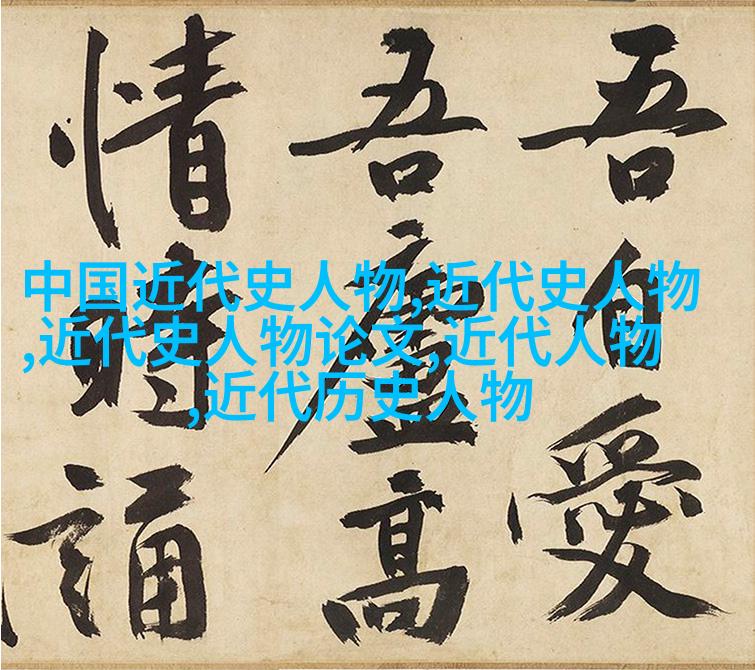 吾自愛
吾廬高
情時誦
中国近代史人物,近代史人物
,近代史人物论文,近代人物
,近代历史人物